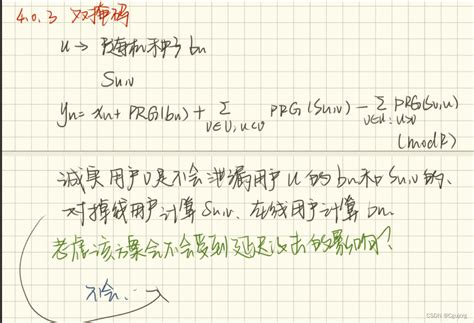 4.0.3 双掩码
u → 随机种子 bu
Su,v
yu = xu + PRG(bu) + Σ PRG(Su,v) − Σ PRG(Su,v)
v∈U, u<v v∈U: u>v
(mod R)
诚实用户v是不会泄漏用户u的bu和Su,v的.
对掉线用户计算Su,v. 在线用户计算bu.
考虑该方案会不会受到延迟攻击的影响？
不会.
CSDN